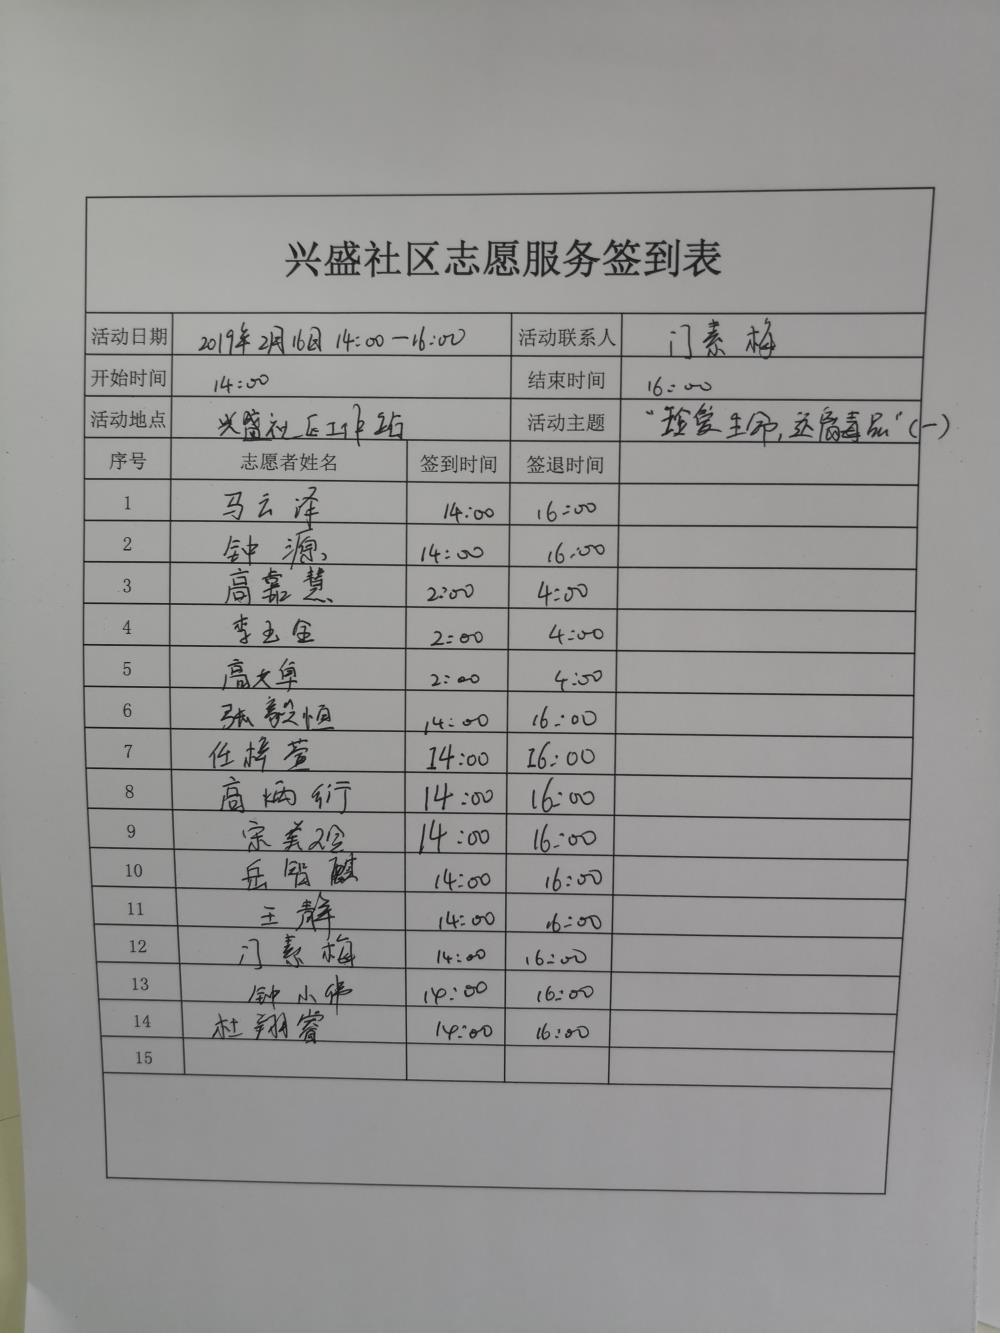 兴盛社区志愿服务签到表
活动日期 2019年2月16日 14:00—16:00 活动联系人 门素梅
开始时间 14:00 结束时间 16:00
活动地点 兴盛社区工作站 活动主题 "珍爱生命,远离毒品"(一)
序号 志愿者姓名 签到时间 签退时间
1 马云泽 14:00 16:00
2 钟源 14:00 16:00
3 高嘉慧 2:00 4:00
4 李玉金 2:00 4:00
5 高大卓 2:00 4:00
6 张毅恒 14:00 16:00
7 任梓萱 14:00 16:00
8 高炳衍 14:00 16:00
9 宗美玲 14:00 16:00
10 岳智麒 14:00 16:00
11 王静 14:00 16:00
12 门素梅 14:00 16:00
13 钟小伟 14:00 16:00
14 杜翔睿 14:00 16:00
15